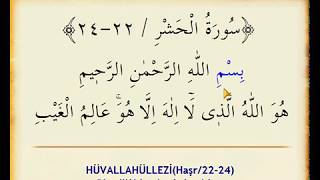 ﴿سُورَةُ الْحَشْرِ / ٢٢-٢٤﴾
بِسْمِ اللّٰهِ الرَّحْمٰنِ الرَّحٖيمِ
هُوَ اللّٰهُ الَّذٖى لَٓا اِلٰهَ اِلَّا هُوَۚ عَالِمُ الْغَيْبِ
HÜVALLAHÜLLEZİ(Haşr/22-24)